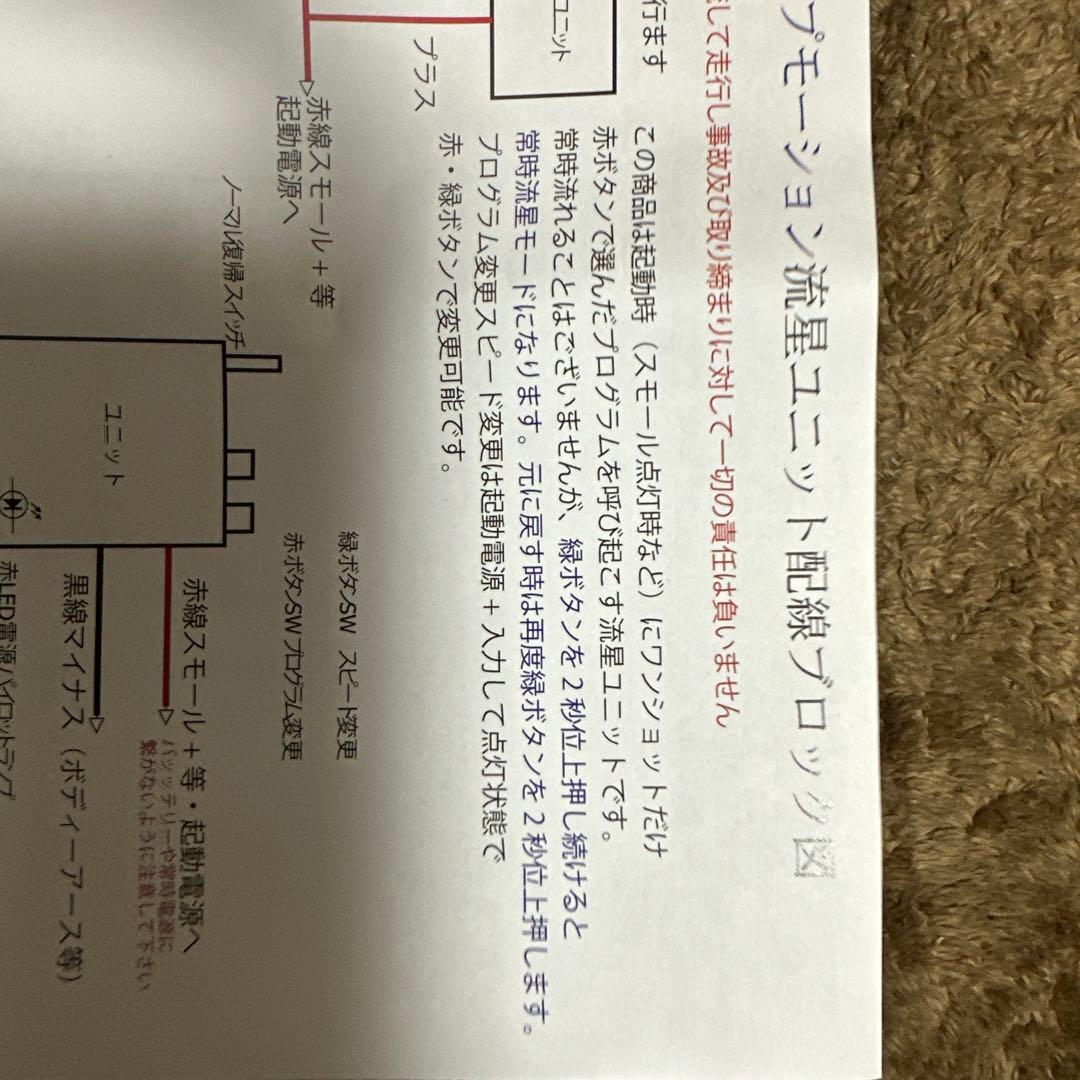 プモーション流星ユニット配線ブロック図
して走行し事故及び取り締まりに対して一切の責任は負いません
行ます
この商品は起動時（スモール点灯時など）にワンショットだけ
赤ボタンで選んだプログラムを呼び起こす流星ユニットです。
常時流れることはございませんが、緑ボタンを２秒位上押し続けると
常時流星モードになります。元に戻す時は再度緑ボタンを２秒位上押します。
プログラム変更スピード変更は起動電源＋入力して点灯状態で
赤・緑ボタンで変更可能です。
ユニット
プラス
赤線スモール＋等
起動電源へ
緑ボタンSW スピード変更
赤ボタンSWプログラム変更
ノーマル復帰スイッチ
ユニット
赤線スモール＋等・起動電源へ
バッテリーや常時電源に
繋がないように注意して下さい
黒線マイナス（ボディーアース等）
赤LED電源パイロットランプ